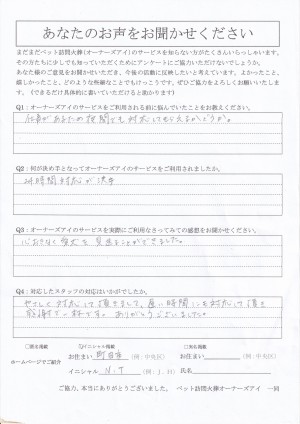 あなたのお声をお聞かせください
まだまだペット訪問火葬(オーナーズアイ)のサービスを知らない方がたくさんいらっしゃいます。
その方たちに少しでも知っていただくためにアンケートにご協力いただけないでしょうか。
あなた様のご意見をお聞かせいただき、今後の活動に反映したいと考えています。よかったこと、
嬉しかったこと、どのような些細なことでもけっこうです。ぜひご協力をよろしくお願いいたします。
(できるだけ具体的に書いていただけると助かります)
Q1：オーナーズアイのサービスをご利用される前に悩んでいたことをお教えください。
仕事があるため夜間でも対応してもらえるかどうか。
Q2：何が決め手となってオーナーズアイのサービスをご利用されましたか。
24時間対応が決手
Q3：オーナーズアイのサービスを実際にご利用なさってみての感想をお聞かせください。
心おきなく愛犬を見送ることができました。
Q4：対応したスタッフの対応はいかがでしたか。
やさしく対応して頂きまして、遅い時間にも対応して頂き
感謝で一杯です。ありがとうございました。
□匿名掲載 ☑イニシャル掲載 □実名掲載
ホームページでご紹介
お住まい 町田市 (例：中央区) お住まい (例：中央区)
イニシャル N.T (例：J.H) 氏名
ご協力、本当にありがとうございました。 ペット訪問火葬オーナーズアイ 一同